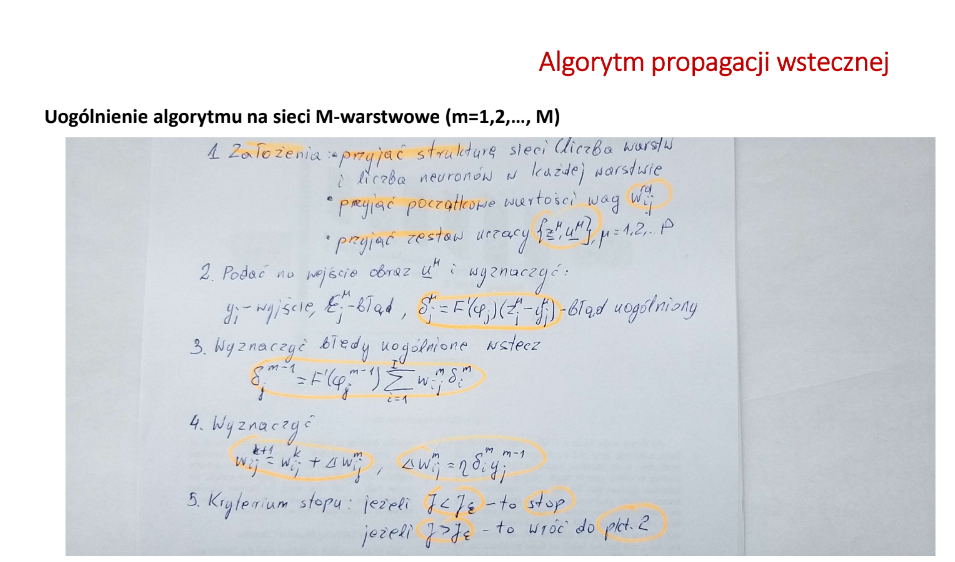 Algorytm propagacji wstecznej
Uogólnienie algorytmu na sieci M-warstwowe (m=1,2,…, M)
1. Założenia: • przyjąć strukturę sieci (liczba warstw
i liczba neuronów w każdej warstwie
• przyjąć początkowe wartości wag w_ij^(q)
• przyjąć zestaw uczący {z^μ, u^μ}, μ=1,2,.. P
2. Podać na wejście obraz u^μ i wyznaczyć:
y_j - wyjście, ε_j^μ - błąd, δ_j^μ = F'(φ_j)(z_j^μ - y_j^μ) - błąd uogólniony
3. Wyznaczyć błędy uogólnione wstecz
δ_j^m-1 = F'(φ_j^m-1) Σ_i=1^I w_ij^m δ_i^m
4. Wyznaczyć
w_ij^k+1 = w_ij^k + Δw_ij^m, Δw_ij^m = η δ_i^m y_j^m-1
5. Kryterium stopu: jeżeli J < J_ε - to stop
jeżeli J > J_ε - to wróć do pkt. 2